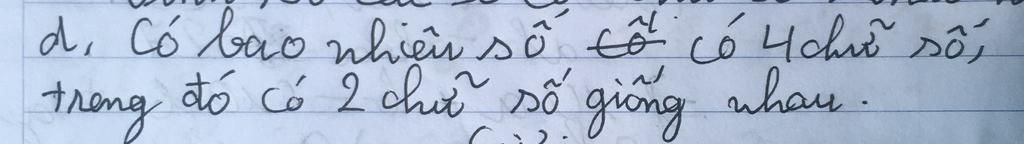 d, Có bao nhiêu số có 4 chữ số,
trong đó có 2 chữ số giống nhau.